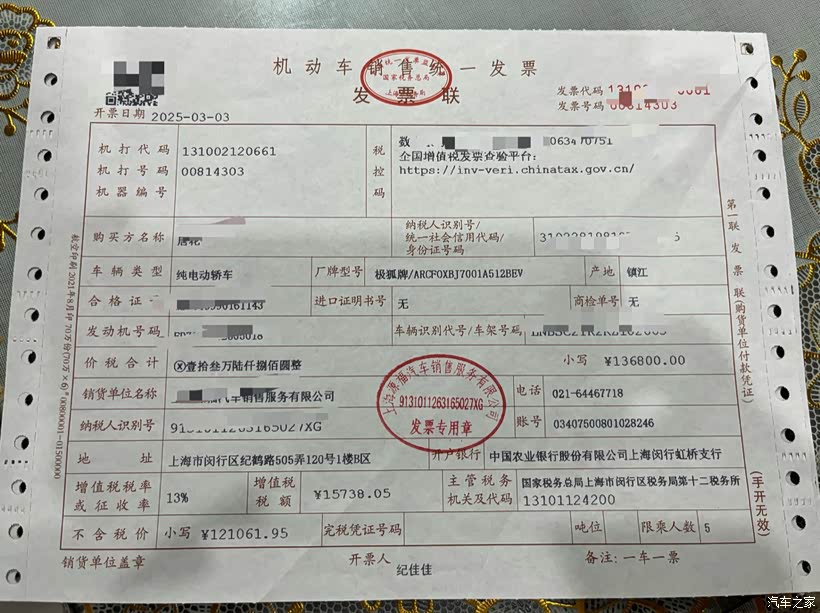 机动车销售统一发票
发票联
开票日期 2025-03-03
发票代码
发票号码 00814303
机打代码 131002120661
机打号码 00814303
机器编号
税控码
全国增值税发票查验平台:
https://inv-veri.chinatax.gov.cn/
购买方名称
纳税人识别号/
统一社会信用代码/
身份证号码
车辆类型 纯电动轿车 厂牌型号 极狐牌/ARCFOXBJ7001A512BEV 产地 镇江
合格证号 进口证明书号 无 商检单号 无
发动机号码 车辆识别代号/车架号码
价税合计 ⓧ壹拾叁万陆仟捌佰圆整 小写 ¥136800.00
销货单位名称 汽车销售服务有限公司 电话 021-64467718
纳税人识别号 9131011263165027XG 账号 03407500801028246
地址 上海市闵行区纪鹤路505弄120号1楼B区 开户银行 中国农业银行股份有限公司上海闵行虹桥支行
增值税税率
或征收率 13% 增值税
税额 ¥15738.05 主管税务
机关及代码 国家税务总局上海市闵行区税务局第十二税务所
13101124200
不含税价 小写 ¥121061.95 完税凭证号码 吨位 限乘人数 5
销货单位盖章 开票人 纪佳佳 备注:一车一票
第一联 发票联(购货单位付款凭证)
(手开无效)
汽车销售服务有限公司
9131011263165027XG
发票专用章
国家税务总局
汽车之家